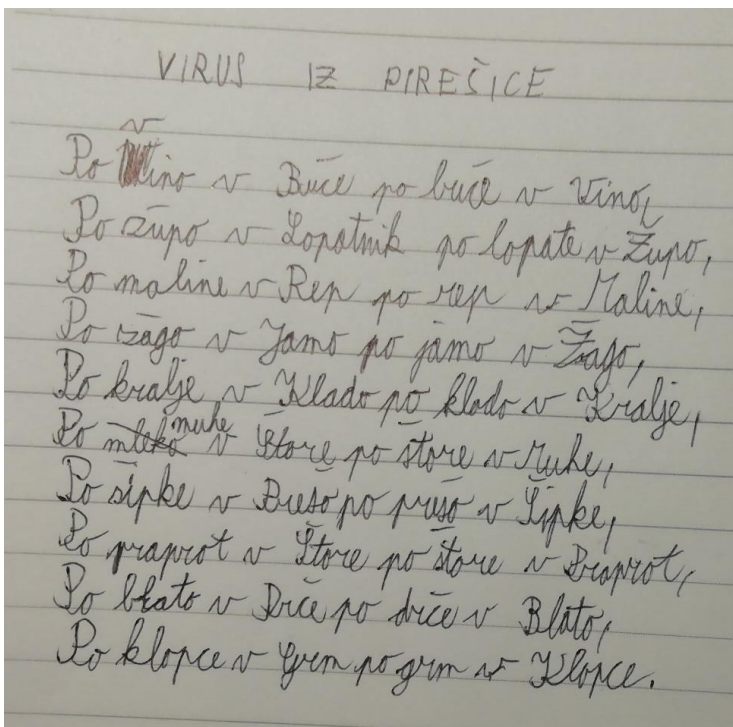 VIRUS IZ PIREŠICE
Po vino v Buče po buče v Vino,
Po župo v Lopatnik po lopate v Župo,
Po maline v Rep po rep v Maline,
Po žago v Jamo po jamo v Žago,
Po kralje v Klado po klado v Kralje,
Po mleko muhe v Štore po štore v Muhe,
Po šipke v Prešo po prešo v Šipke,
Po praprot v Štore po štore v Praprot,
Po blato v Drče po drče v Blato,
Po klopce v Grm po grm v Klopce.